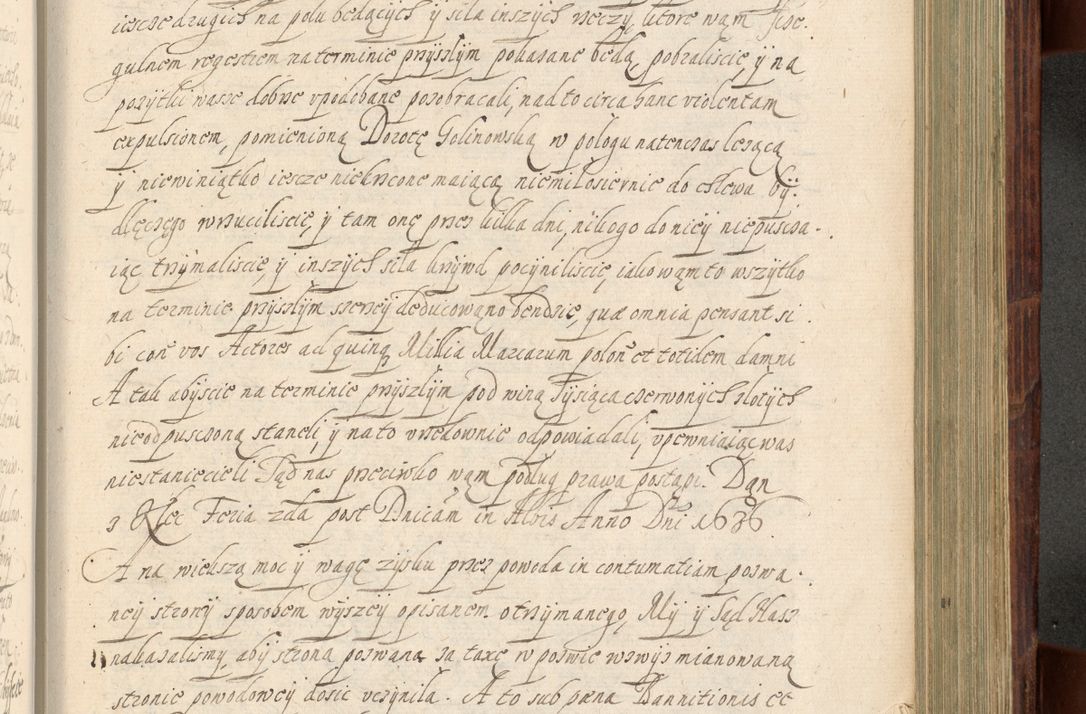 iescze drugich na polu będących y siła inszych rzeczy, ktore wam spec.
gulnem regestrem na terminie przyszłym pokazane będą, pobraliscie, y na
pozytki wasze dobrze vpodobane poobracali, nad to circa hanc violentam
expulsionem, pomienioną Dorotę Golinowską w pologu natenczas lezącą
y niewiniątko iescze niekrzczone maiącą niemiłosiernie do chlewa by-
dlęczego wrzuciliscie, y tam onę przez kilka dni, nikogo do niey niepuscza-
iąc trzymaliscie, y inszych siła krzywd poczyniliscie, iako wam to wszytko
na terminie przyszłym szerzey deducowano bendzie, quæ omnia pensant si
bi coñ vos Actores ad quinq Millia Marcarum poloñ et totidem damni
A tak abyscie na terminie przyszłym pod winą Tysiąca czerwonych złotych
nieodpusczoną staneli, y na to vrzedownie odpowiadali, vpewniaiąc was
niestaniecieli Sąd nas przeciwko wam podług prawa postąpi. Dan
z Kielc Feria 2da post Dnicam in Albis Anno Dni 1636
A na wiekszą moc y wagę zysku przez powoda in contumatiam pozwa-
ney strony sposobem wyszey opisanem otrzymanego, My y Sąd Nasz
nakazalismy, aby strona pozwana za taxę w pozwie wzwyz mianowaną
stronie powodowey dosic vczyniła. A to sub pæna Bannitionis et